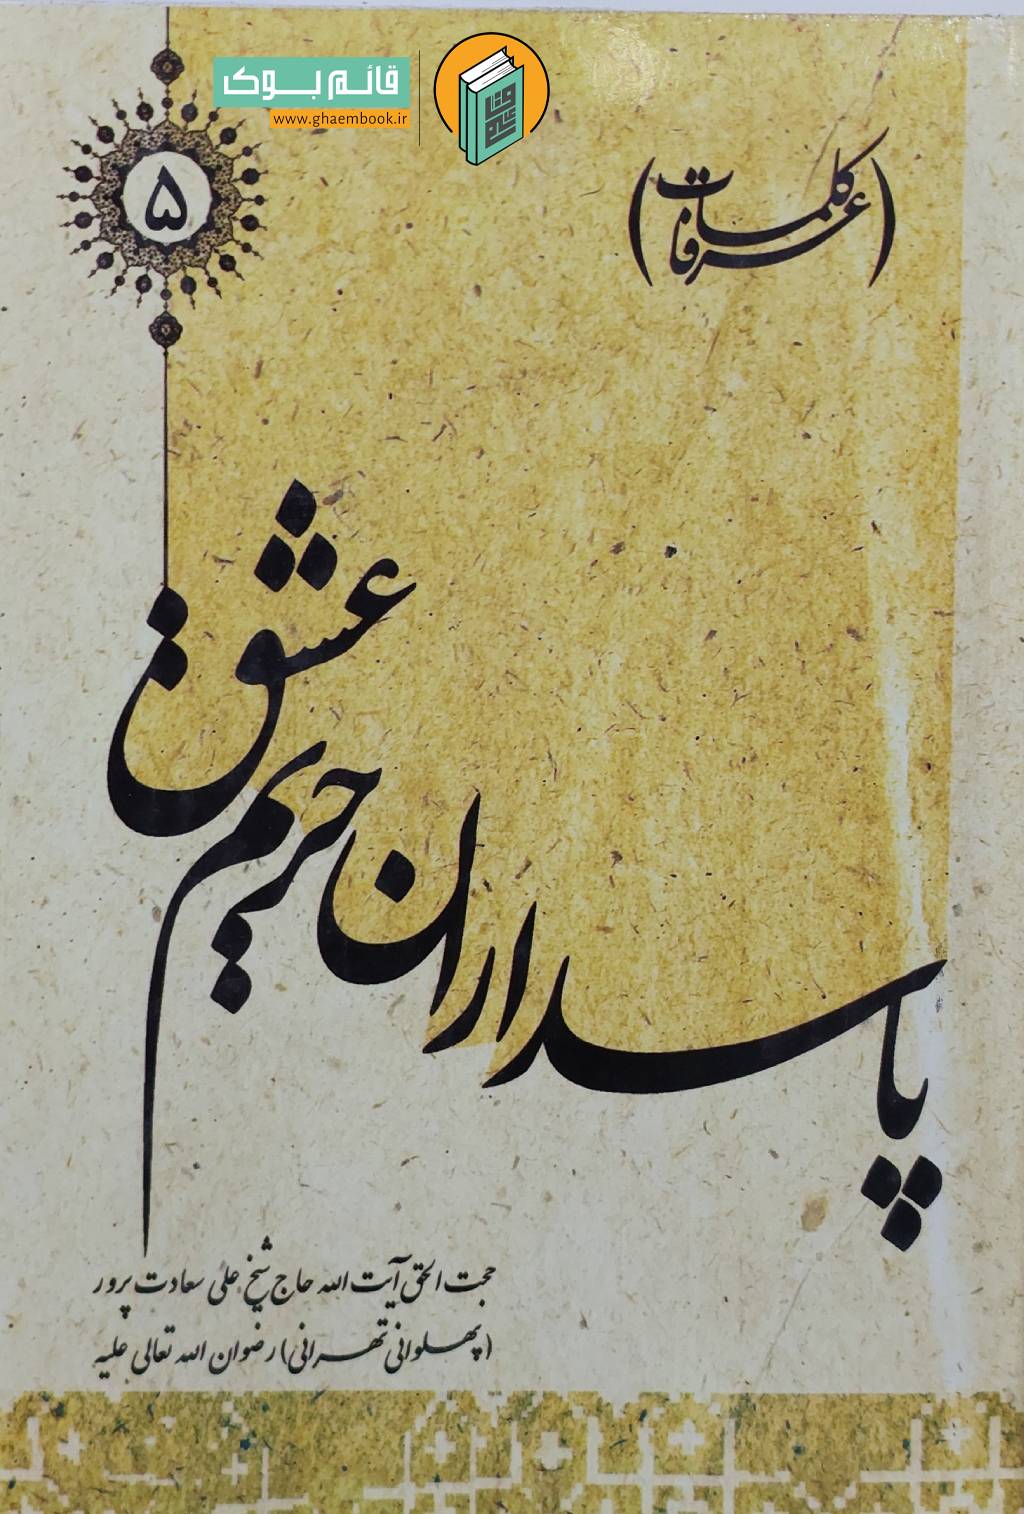 قائم بوک
www.ghaembook.ir
۵
(کلمات
عرفات)
پاسداران حریم عشق
حجت الحق آیت الله حاج شیخ علی سعادت پرور
(پهلوانی تهرانی) رضوان الله تعالی علیه